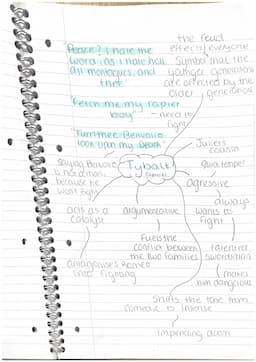 the feud
effects everyone
Symbol that the
younger generations
are affected by the
older generations
"Peace? I hate the
word, as I hate hell,
all montagues, and
thee"
"Fetch me my rapier
boy" - need to
fight
"Turn thee Benvolio
look upon my death"
Tybalt
Juliet's
cousin
Quick temper
agressive
always
wants to
fight
talented
swordsman
makes
him dangerous
saying Benvolio
is not a man,
because he
wont fight
acts as a
catalyst
argumentative
Fuels the
conflict between
the two families
antagonises Romeo
into fighting
Shifts the tone from
comedic to intense
impending doom